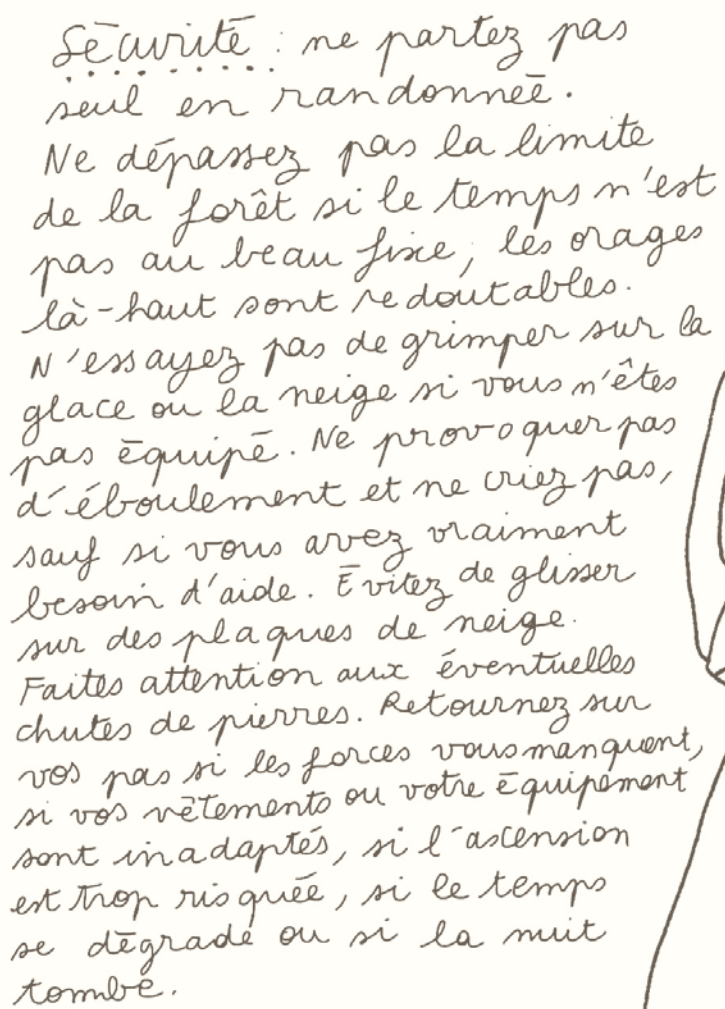 Sécurité : ne partez pas
seul en randonnée.
Ne dépassez pas la limite
de la forêt si le temps n'est
pas au beau fixe, les orages
là-haut sont redoutables.
N'essayez pas de grimper sur la
glace ou la neige si vous n'êtes
pas équipé. Ne provoquer pas
d'éboulement et ne criez pas,
sauf si vous avez vraiment
besoin d'aide. Évitez de glisser
sur des plaques de neige.
Faites attention aux éventuelles
chutes de pierres. Retournez sur
vos pas si les forces vous manquent,
si vos vêtements ou votre équipement
sont inadaptés, si l'ascension
est trop risquée, si le temps
se dégrade ou si la nuit
tombe.